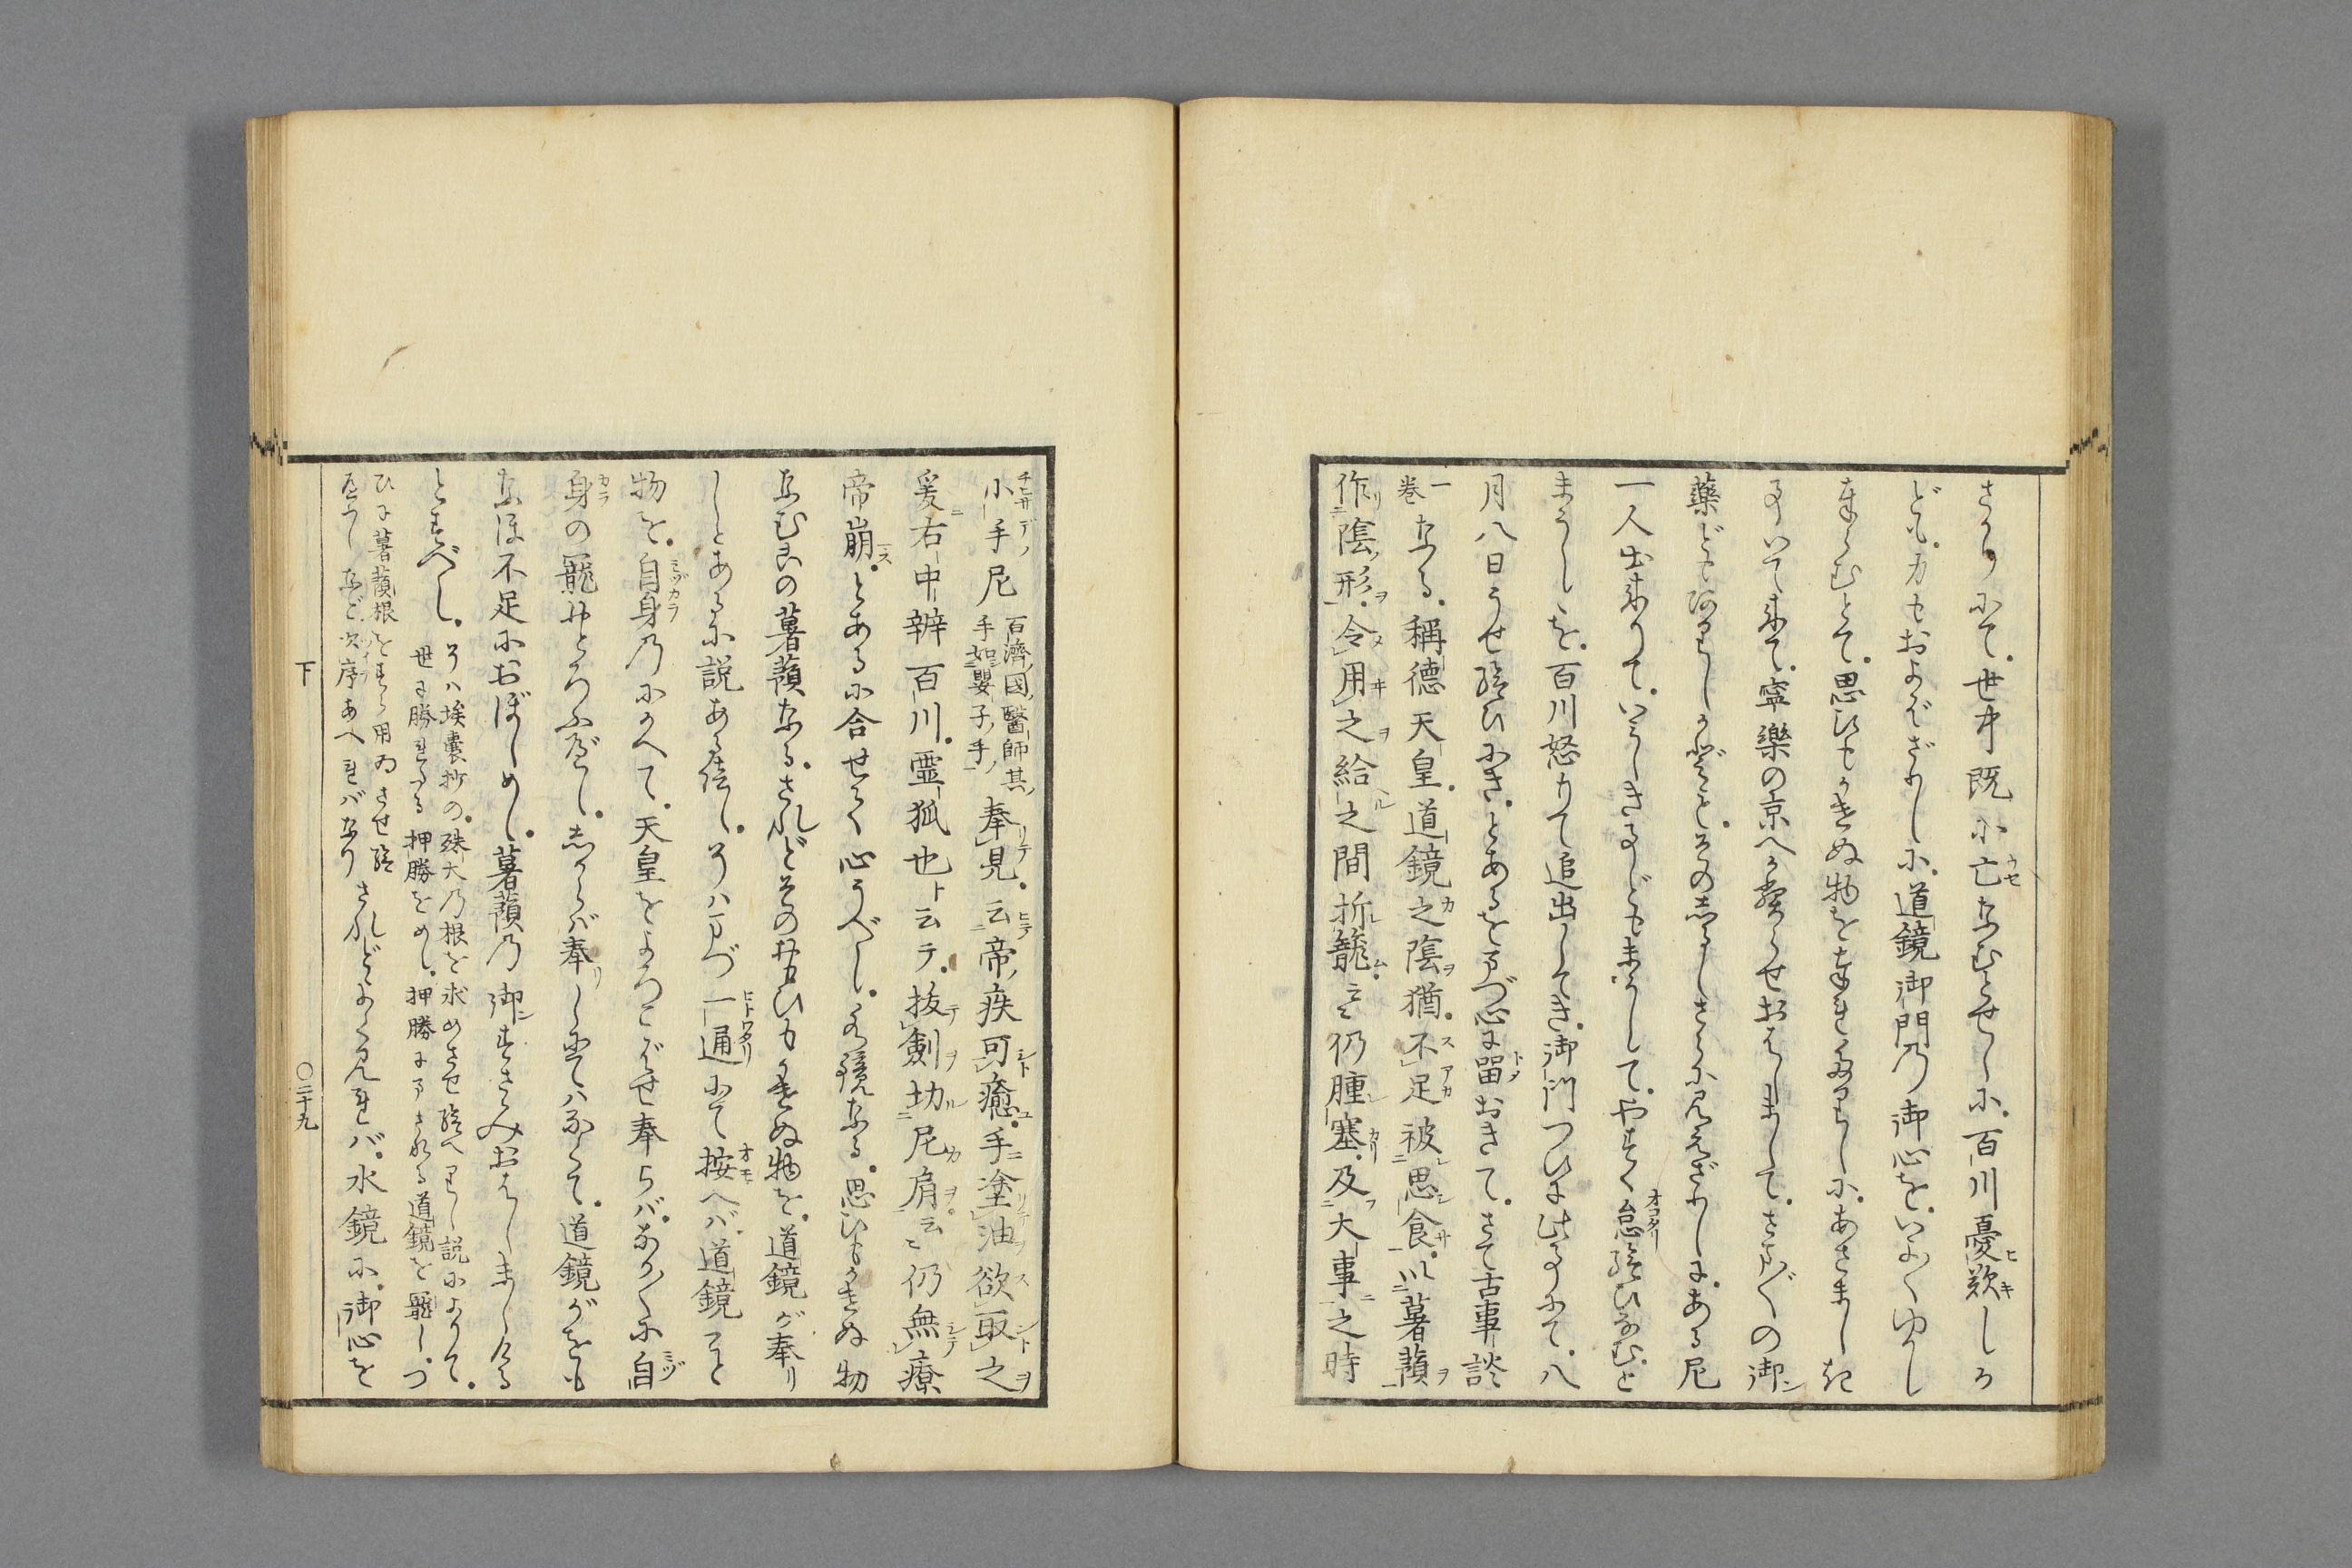 さかりにて。世中既に亡なむとせしに。百川憂歎しか
ども。力もおよばざりしに。道鏡御門乃御心を。いよ〱ゆかし
奉らむとて。思ひもかけぬ物を奉れたりしに。あさましき
事いで来て。寧樂の京へ帰らせおはしまして。さま〲の御
藥ども有りしかども。その志るしさらに見えざりしに。ある尼
一人出来りて。いみしき事ども申して。やすく怠給ひなむと
まうしゝを。百川怒りて追出してき。御門つひに此事にて。八
月八日うせ給ひにき。とあるをまづ心に留おきて。さて古事談
一巻なる。稱德天皇。道鏡之陰猶。不足被思食。以薯蕷
作陰形。令用之給之間折籠。云々仍腫塞。及大事之時
小手尼 百濟國醫師其手如嬰子手 奉見。云帝疾可癒。手塗油欲取之
爰右中辨百川。靈狐也ト云テ。拔劍切尼肩云々仍無療
帝崩。とあるに合せて心うべし。水鏡なる。思ひもかけぬ物
なむこの薯蕷なる。されどその思ひもかけぬ物を。道鏡が奉り
しとあるに説ある信し。そハまづ一通にて按へバ。道鏡こと
物を。自身乃にかへて。天皇をよろこばせ奉らバ。なか〱に自
身の寵おとろふべし。志からバ奉りしにてハなくて。道鏡がをも
なほ不足におぼしめし。薯蕷乃御すさみおはしましける
とすべし。そハ埃囊抄の。殊大乃根を求めさせ給へりし説によりて。
世に勝れたる押勝をめし。押勝にまされる道鏡を寵し。つ
ひに薯蕷根をすら用ゐさせ給
へりしなど次序あへれバなり されどよく見れバ。水鏡に。御心を
下 〇二十九